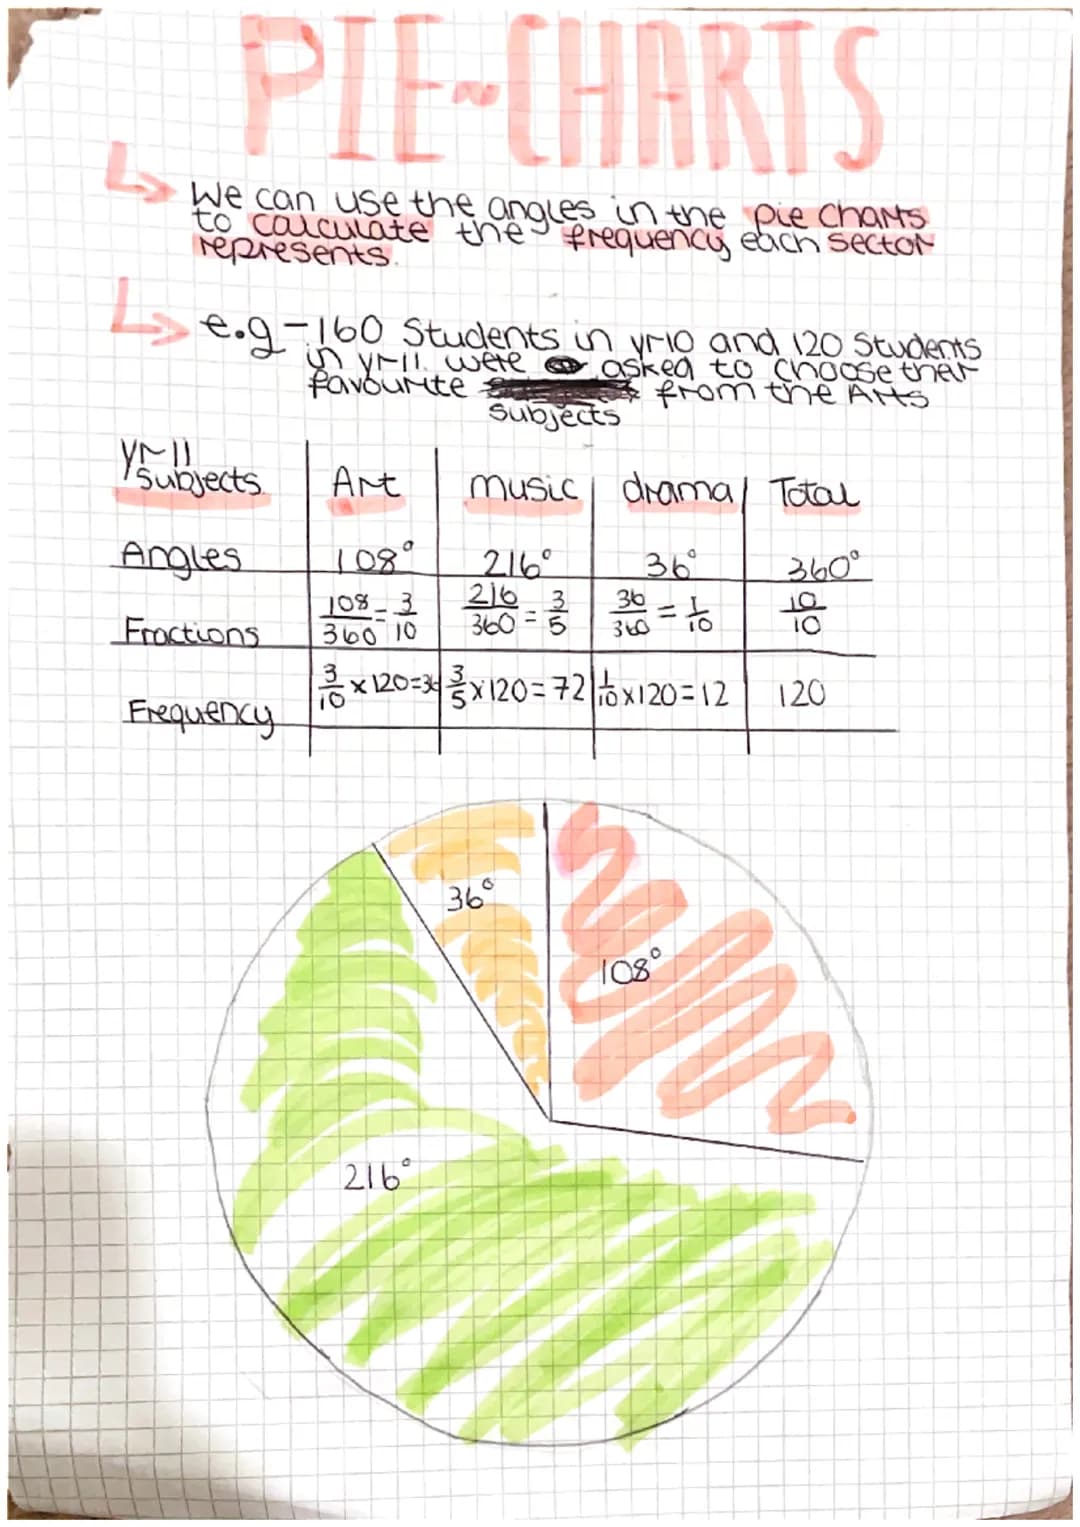 PIE-CHARTS
We can use the angles in the pie charts
to calculate the frequency each sector
represents.
e.g - 160 Students in yr10 and 120 Students
in yr11 were asked to choose their
favourite from the Arts
subjects
yr11
subjects Art music drama Total
Angles 108° 216° 36° 360°
Fractions 108/360 = 3/10 216/360 = 3/5 36/360 = 1/10 10/10
Frequency 3/10 x 120=36 3/5 x 120 = 72 1/10 x 120 = 12 120
36°
108°
216°